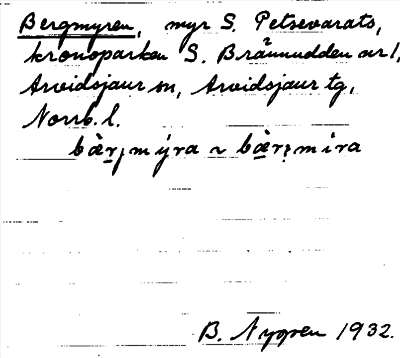 Bergmyren, myr S. Petsevarats,
kronoparken S. Brännudden nr 1,
Arvidsjaur sn, Arvidsjaur tg,
Norrb. l.
bæ̀r̥mýra ~ bæ̀r̥míra
B. Nygren 1932.